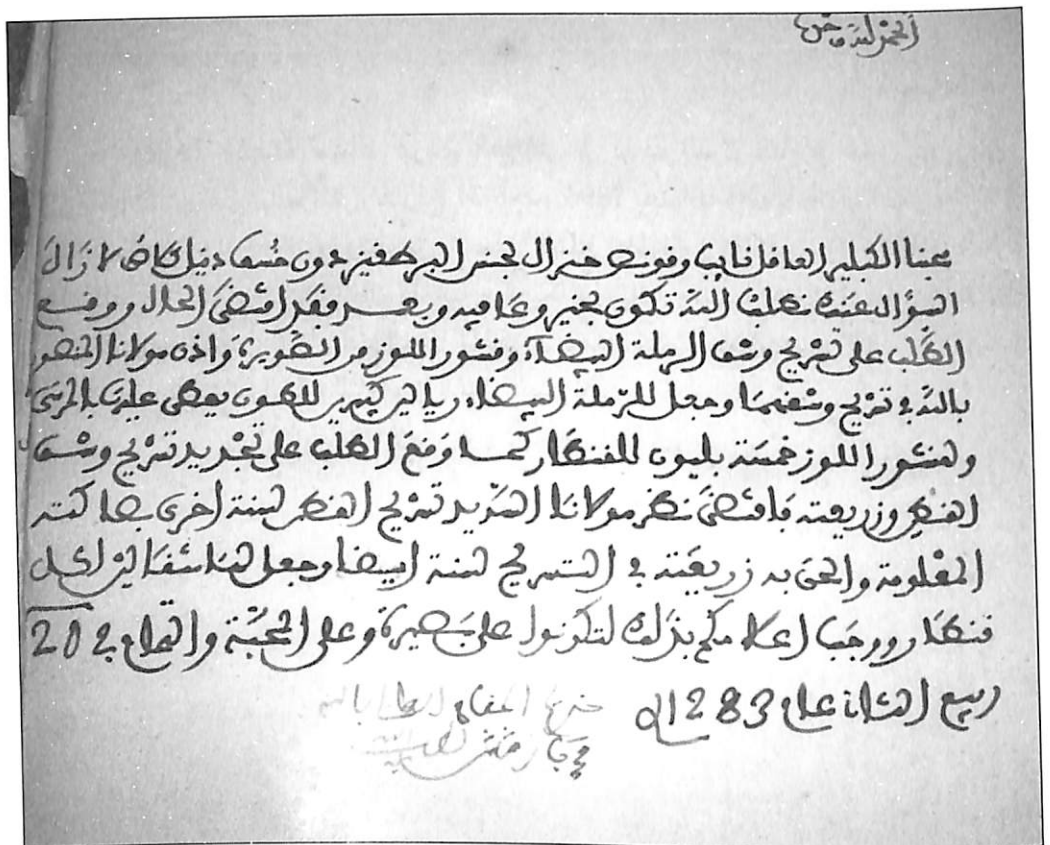 الحمد لله وحده
محبنا الكبلير العاقل نايب وقونص جنرال لجنس البرطقيز دون خسي دنيل كلاص لا زال
السؤال عنك نطلب الله تكون بخير وعافيه وبعد فقد اقتضى الحال ووقع
الطلب على تسريح وسق الرملة البيضاء وقشور اللوز من الصويرة واذن مولانا المنصور
بالله في تسريح وسقهما وجعل للرملة البيضاء ريالين كبيرين للطون يعطى عليها بالمرسى
ولقشور اللوز خمسة بليون للقنطار كما وقع الطلب على تجديد تسريح وسق
القطن وزريعته فاقتضى نظر مولانا السديد تسريح القطن لسنة اخرى بصاكته
المعلومة والحق به زريعته في التسريح لسنة ايضا وجعل لها مثقالين لكل
قنطار ووجب اعلامكم بذلك لتكونوا على بصيرة وعلى المحبة والتمام في 20
ربيع الثاني عام 1283ه
خديم المقام العالي بالله
محمد بركاش لطف الله به